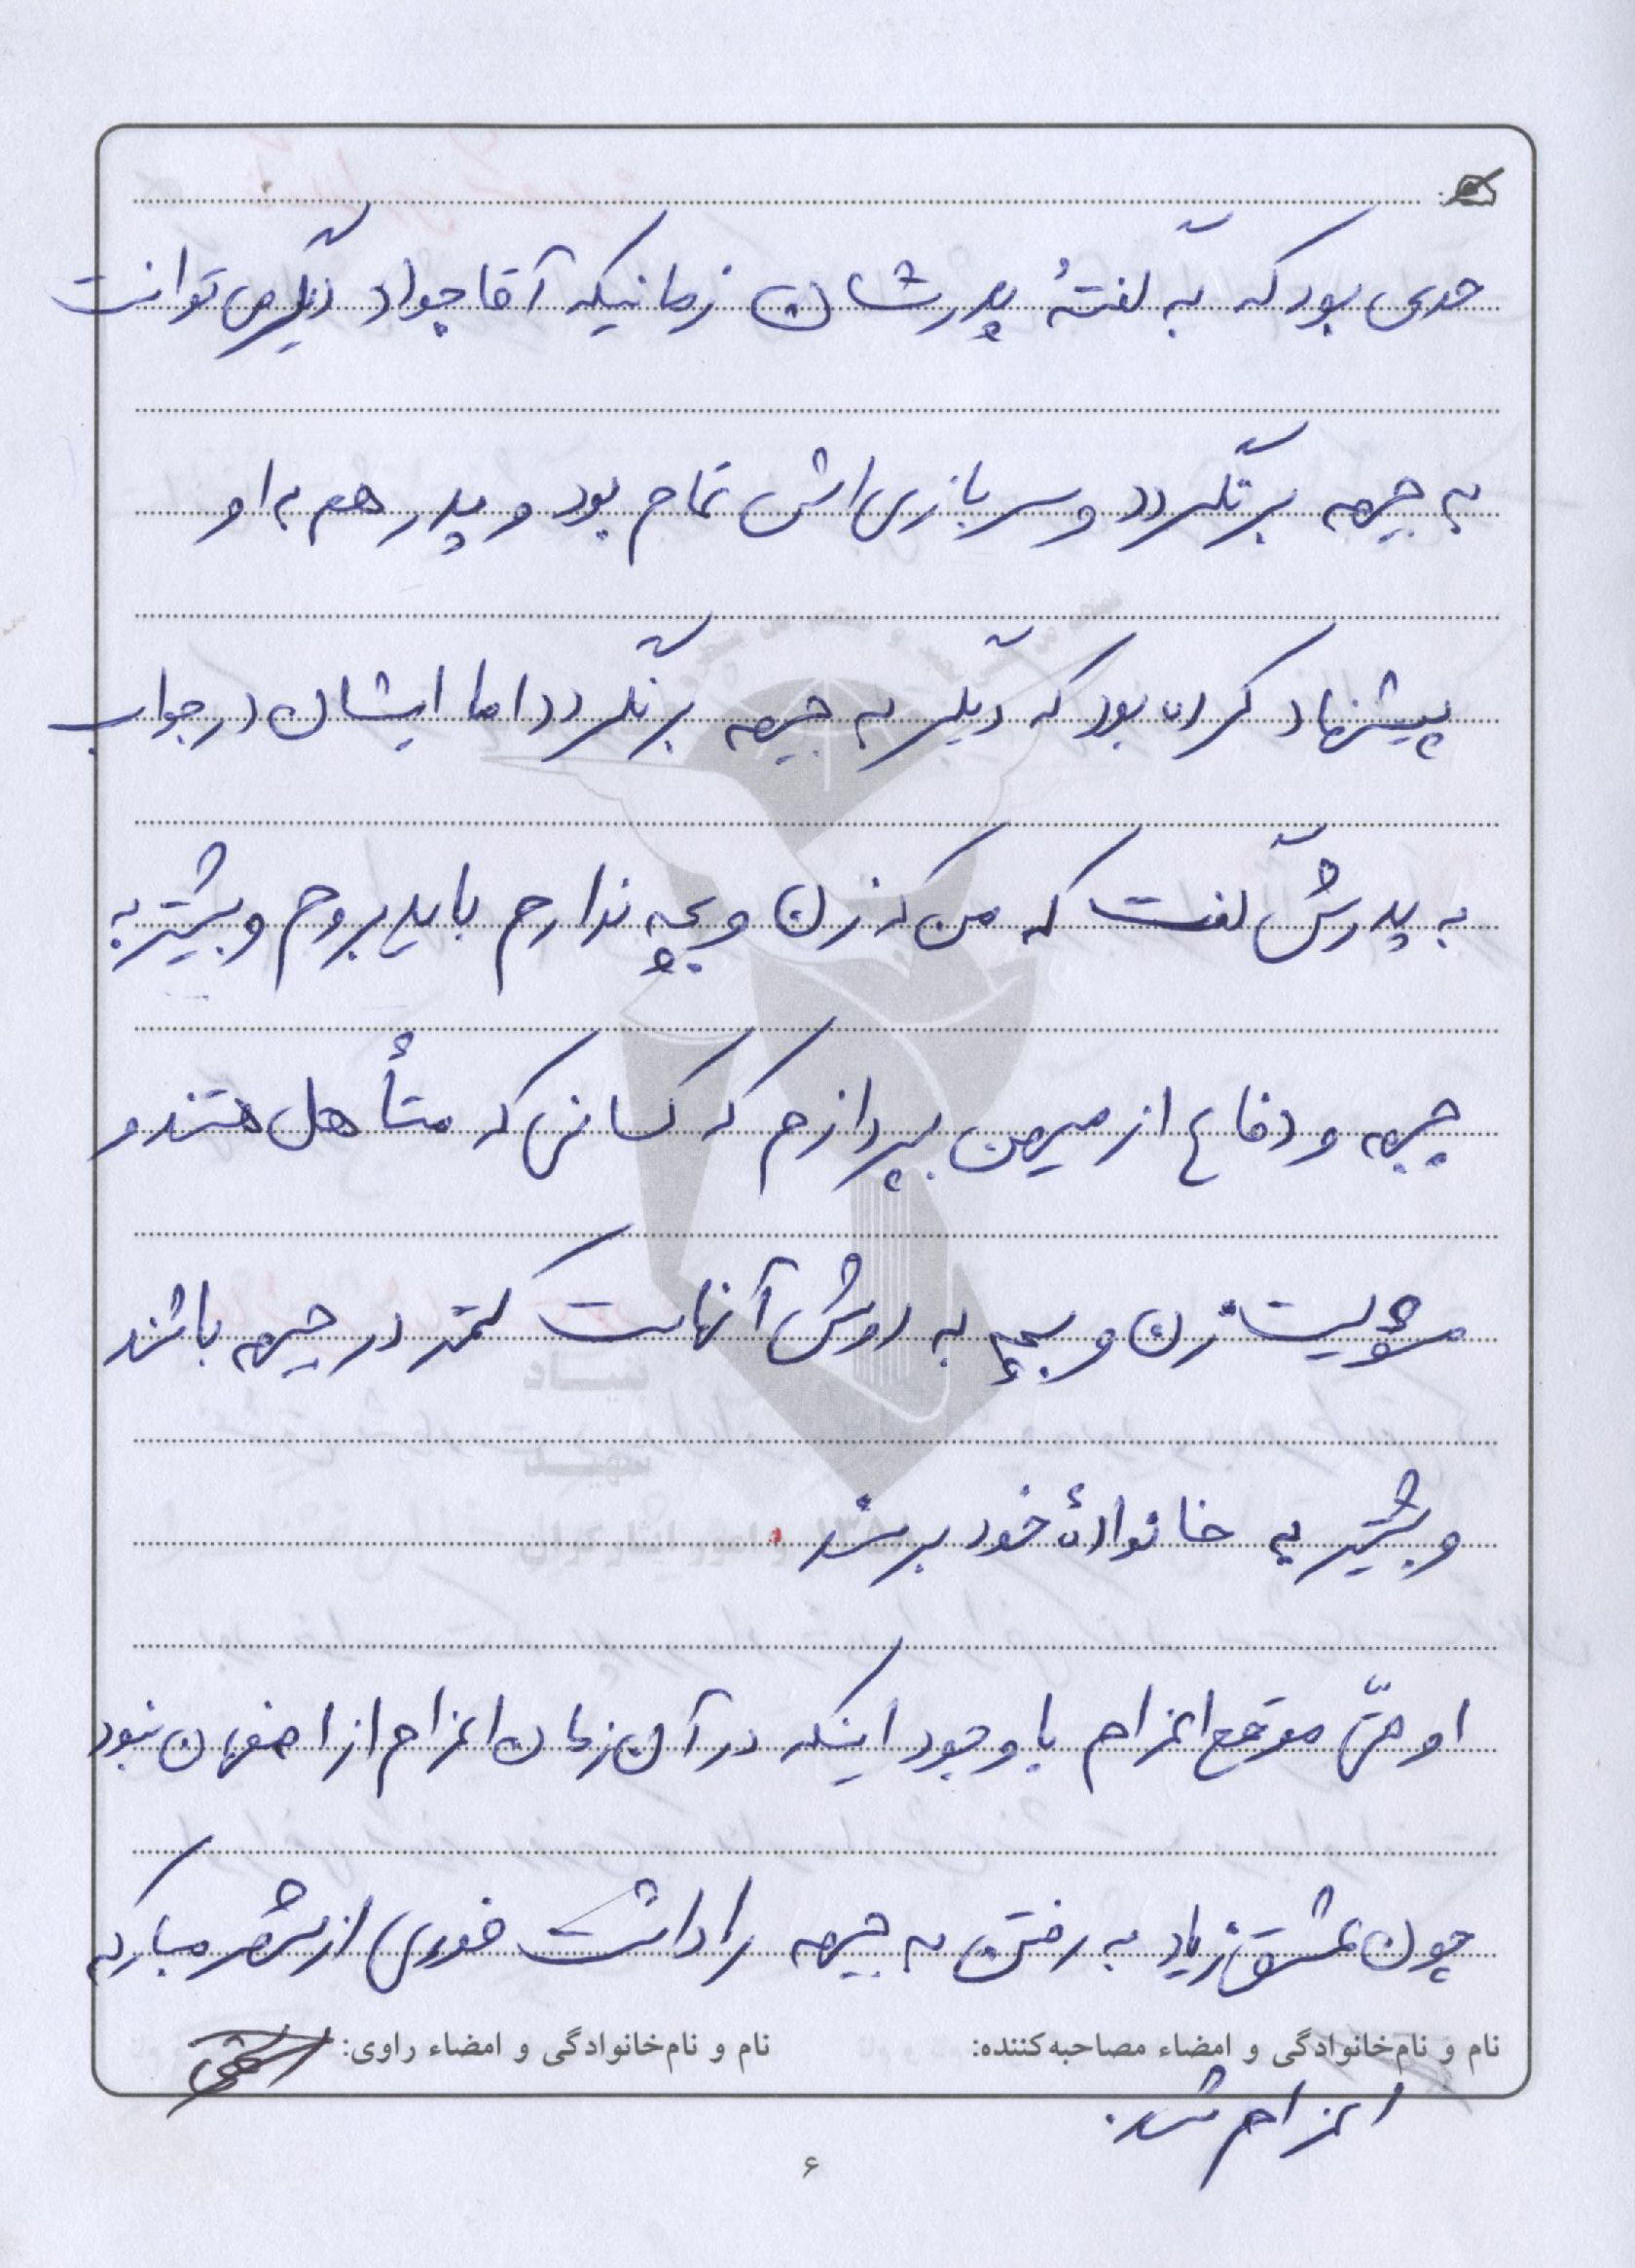 حدی بود که به گفتهٔ پدرشان زمانیکه آقا جواد دیگر می توانست
به جبهه برنگردد و سربازی اش تمام بود و پدر هم به او
پیشنهاد کرده بود که دیگر به جبهه برنگردد اما ایشان در جواب
به پدرش گفت که من که زن و بچه ندارم باید بروم و بیشتر به
جبهه و دفاع از میهن بپردازم که کسانی که متأهل هستند و
مسئولیت زن و بچه به دوش آنهاست کمتر در جبهه باشند
و بیشتر به خانوادهٔ خود برسند.
او حتّی موقع اعزام با وجود اینکه در آن زمان اعزام از اصفهان نبود
چون عشق زیاد به رفتن به جبهه را داشت فوری از شهر مبارکه
نام و نام‌خانوادگی و امضاء مصاحبه‌کننده: نام و نام‌خانوادگی و امضاء راوی:
اعزام شد.
۶